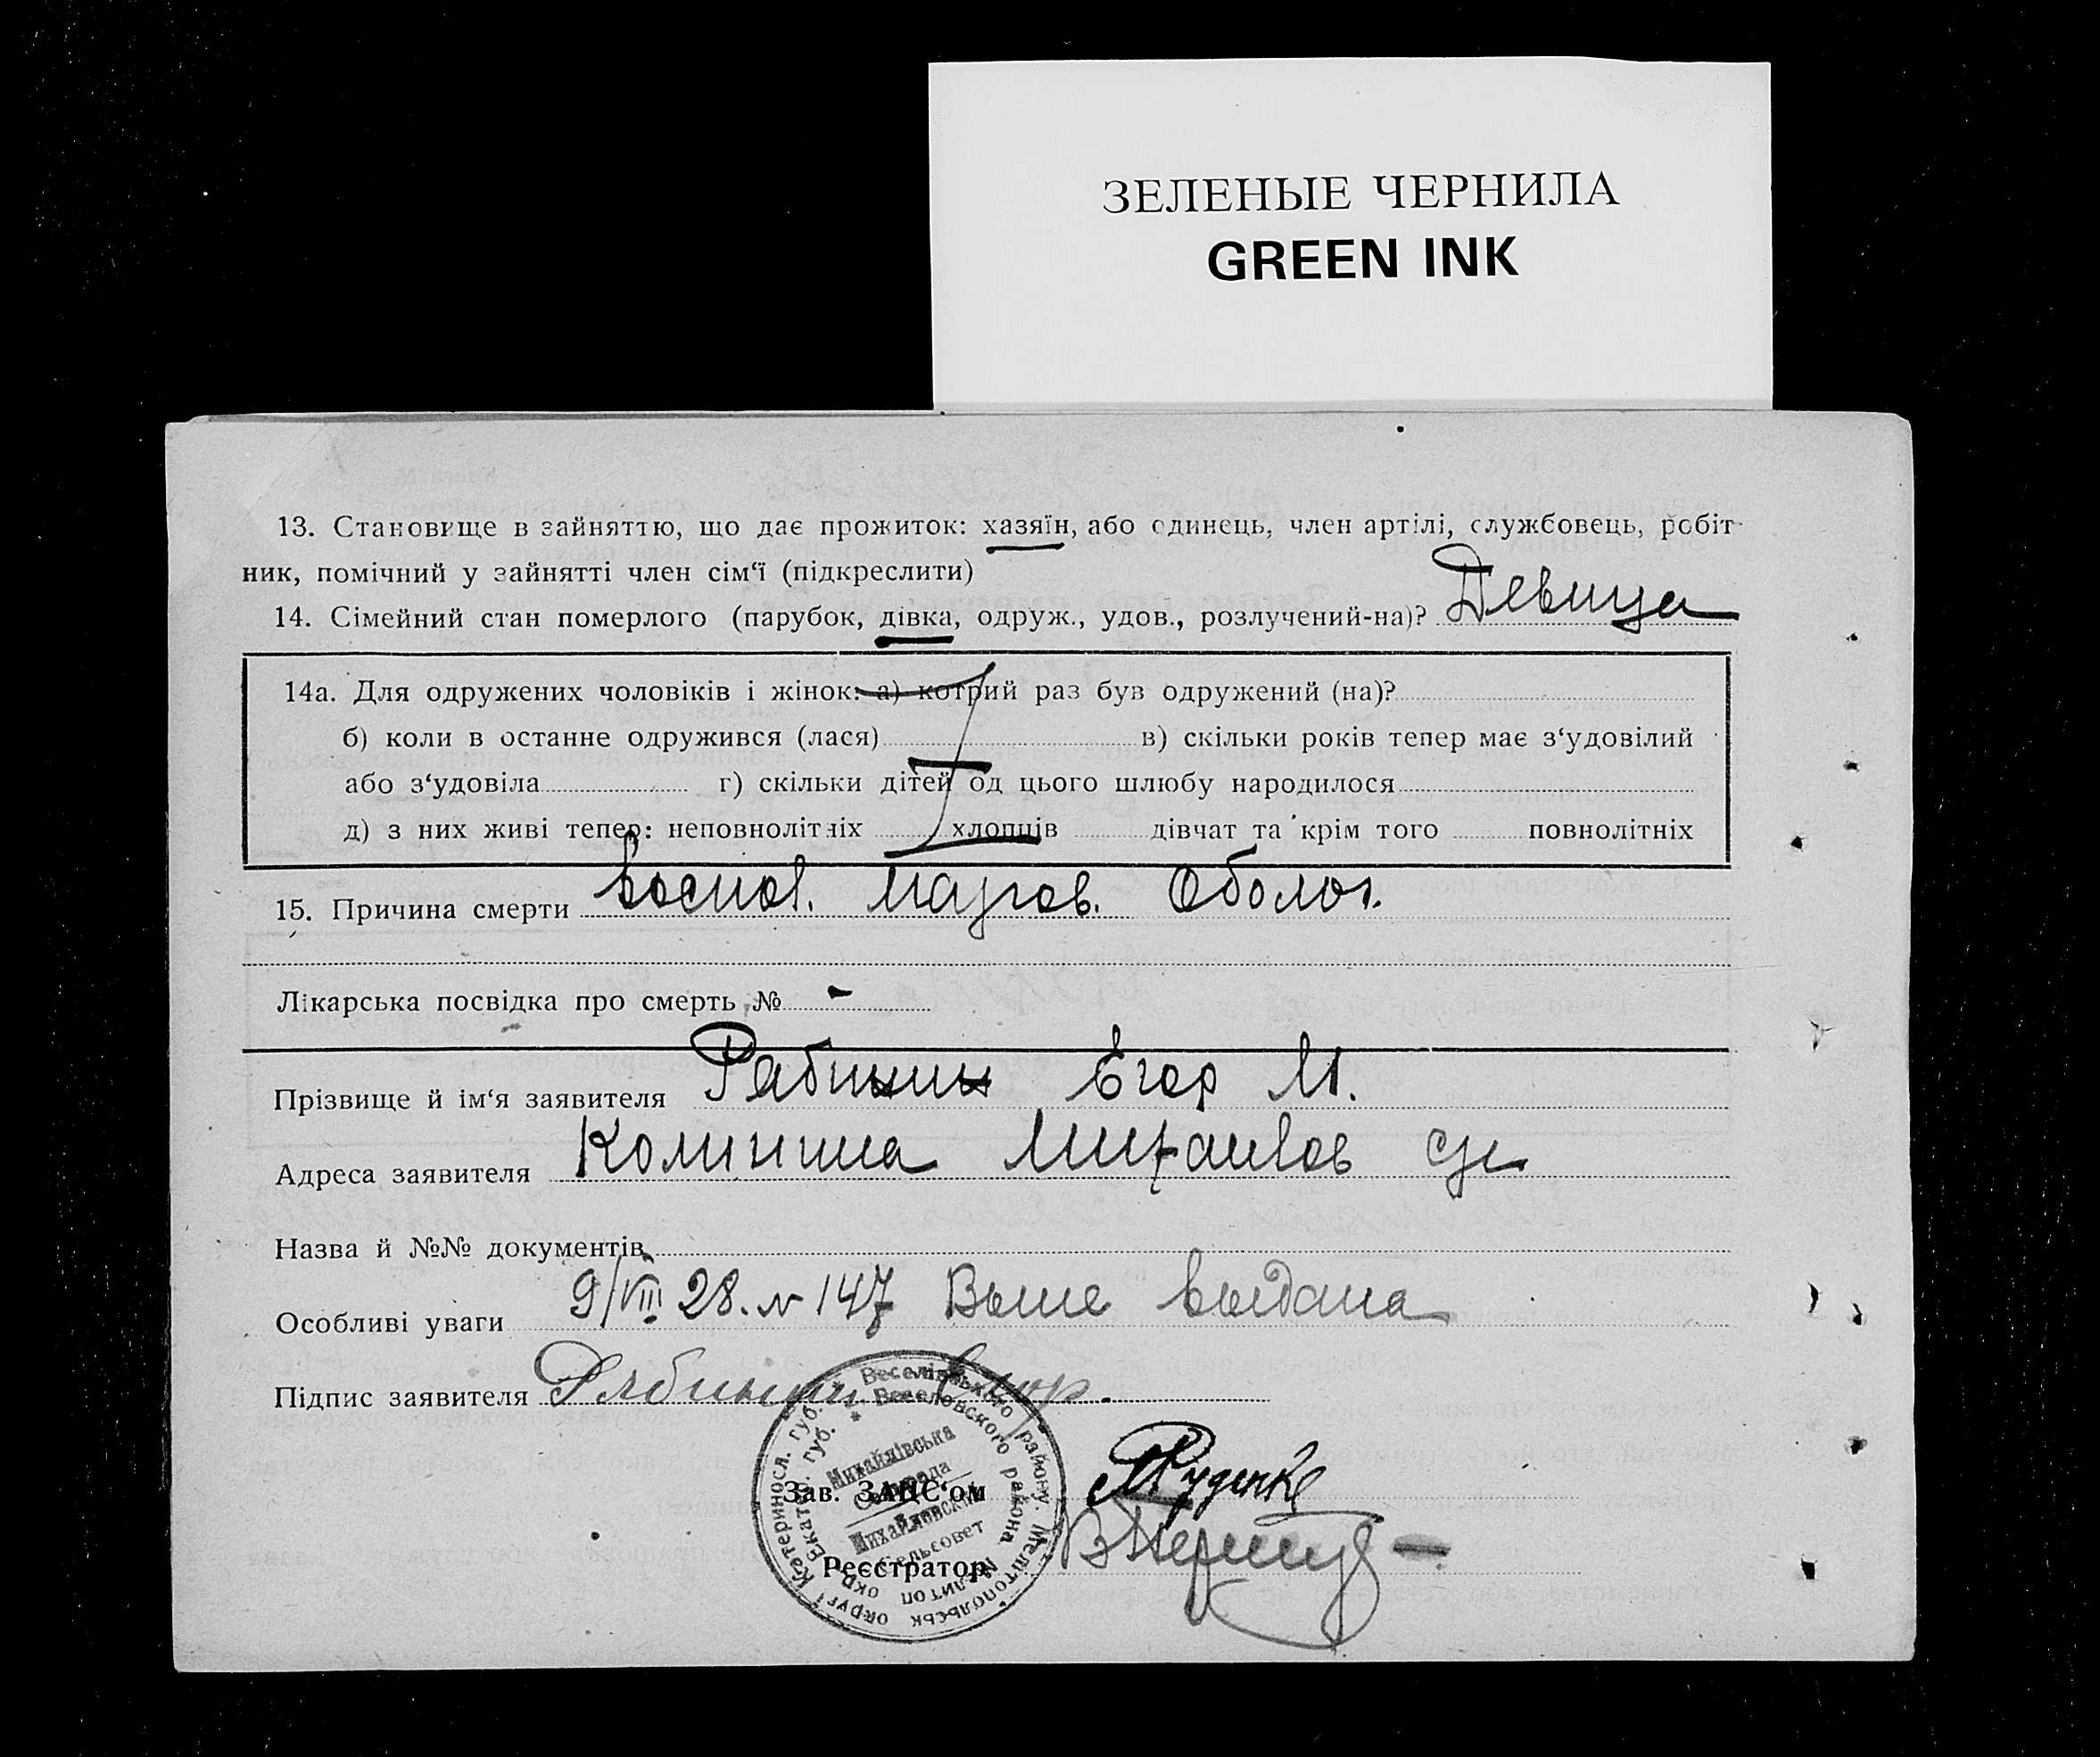 ЗЕЛЕНЫЕ ЧЕРНИЛА
GREEN INK
13. Становище в зайняттю, що дає прожиток: хазяїн, або одинець, член артілі, службовець, робіт-
ник, помічний у зайнятті член сім‘ї (підкреслити)
14. Сімейний стан померлого (парубок, дівка, одруж., удов., розлучений-на)? Девица
14а. Для одружених чоловіків і жінок: а) котрий раз був одружений (на)?
б) коли в останне одружився (лася) в) скільки років тепер має з‘удовілий
або з‘удовіла г) скільки дітей од цього шлюбу народилося
д) з них живі тепер: неповнолітніх хлопців дівчат та крім того повнолітніх
15. Причина смерти Воспал. мозгов. Оболоч.
Лікарська посвідка про смерть № -
Прізвище й ім‘я заявителя Рабинин Егор М.
Адреса заявителя Михайлов с/с
Назва й №№ документів
Особливі уваги 9/VIII 28. № 147 выдана
Підпис заявителя Рябинин Егор.
Веселівського району. Мелітопольськ. округі Катеринosл. губ.
* Веселовского района Мелитоп. окр. Екат. губ.
Михайлівська
Сельрада
Михайловский
Сельсовет
Зав. ЗАГС‘ом Руденко
Реєстратор